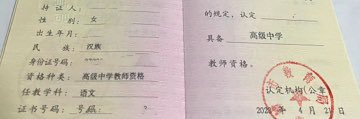 持证人：
性别：女
出生年月：
民族：汉族
身份证号码：
资格种类：高级中学教师资格
任教学科：语文
证书号码：号码：
的规定，认定
具备 高级中学
教师资格。
认定机构（公章
教育局
年4月21日